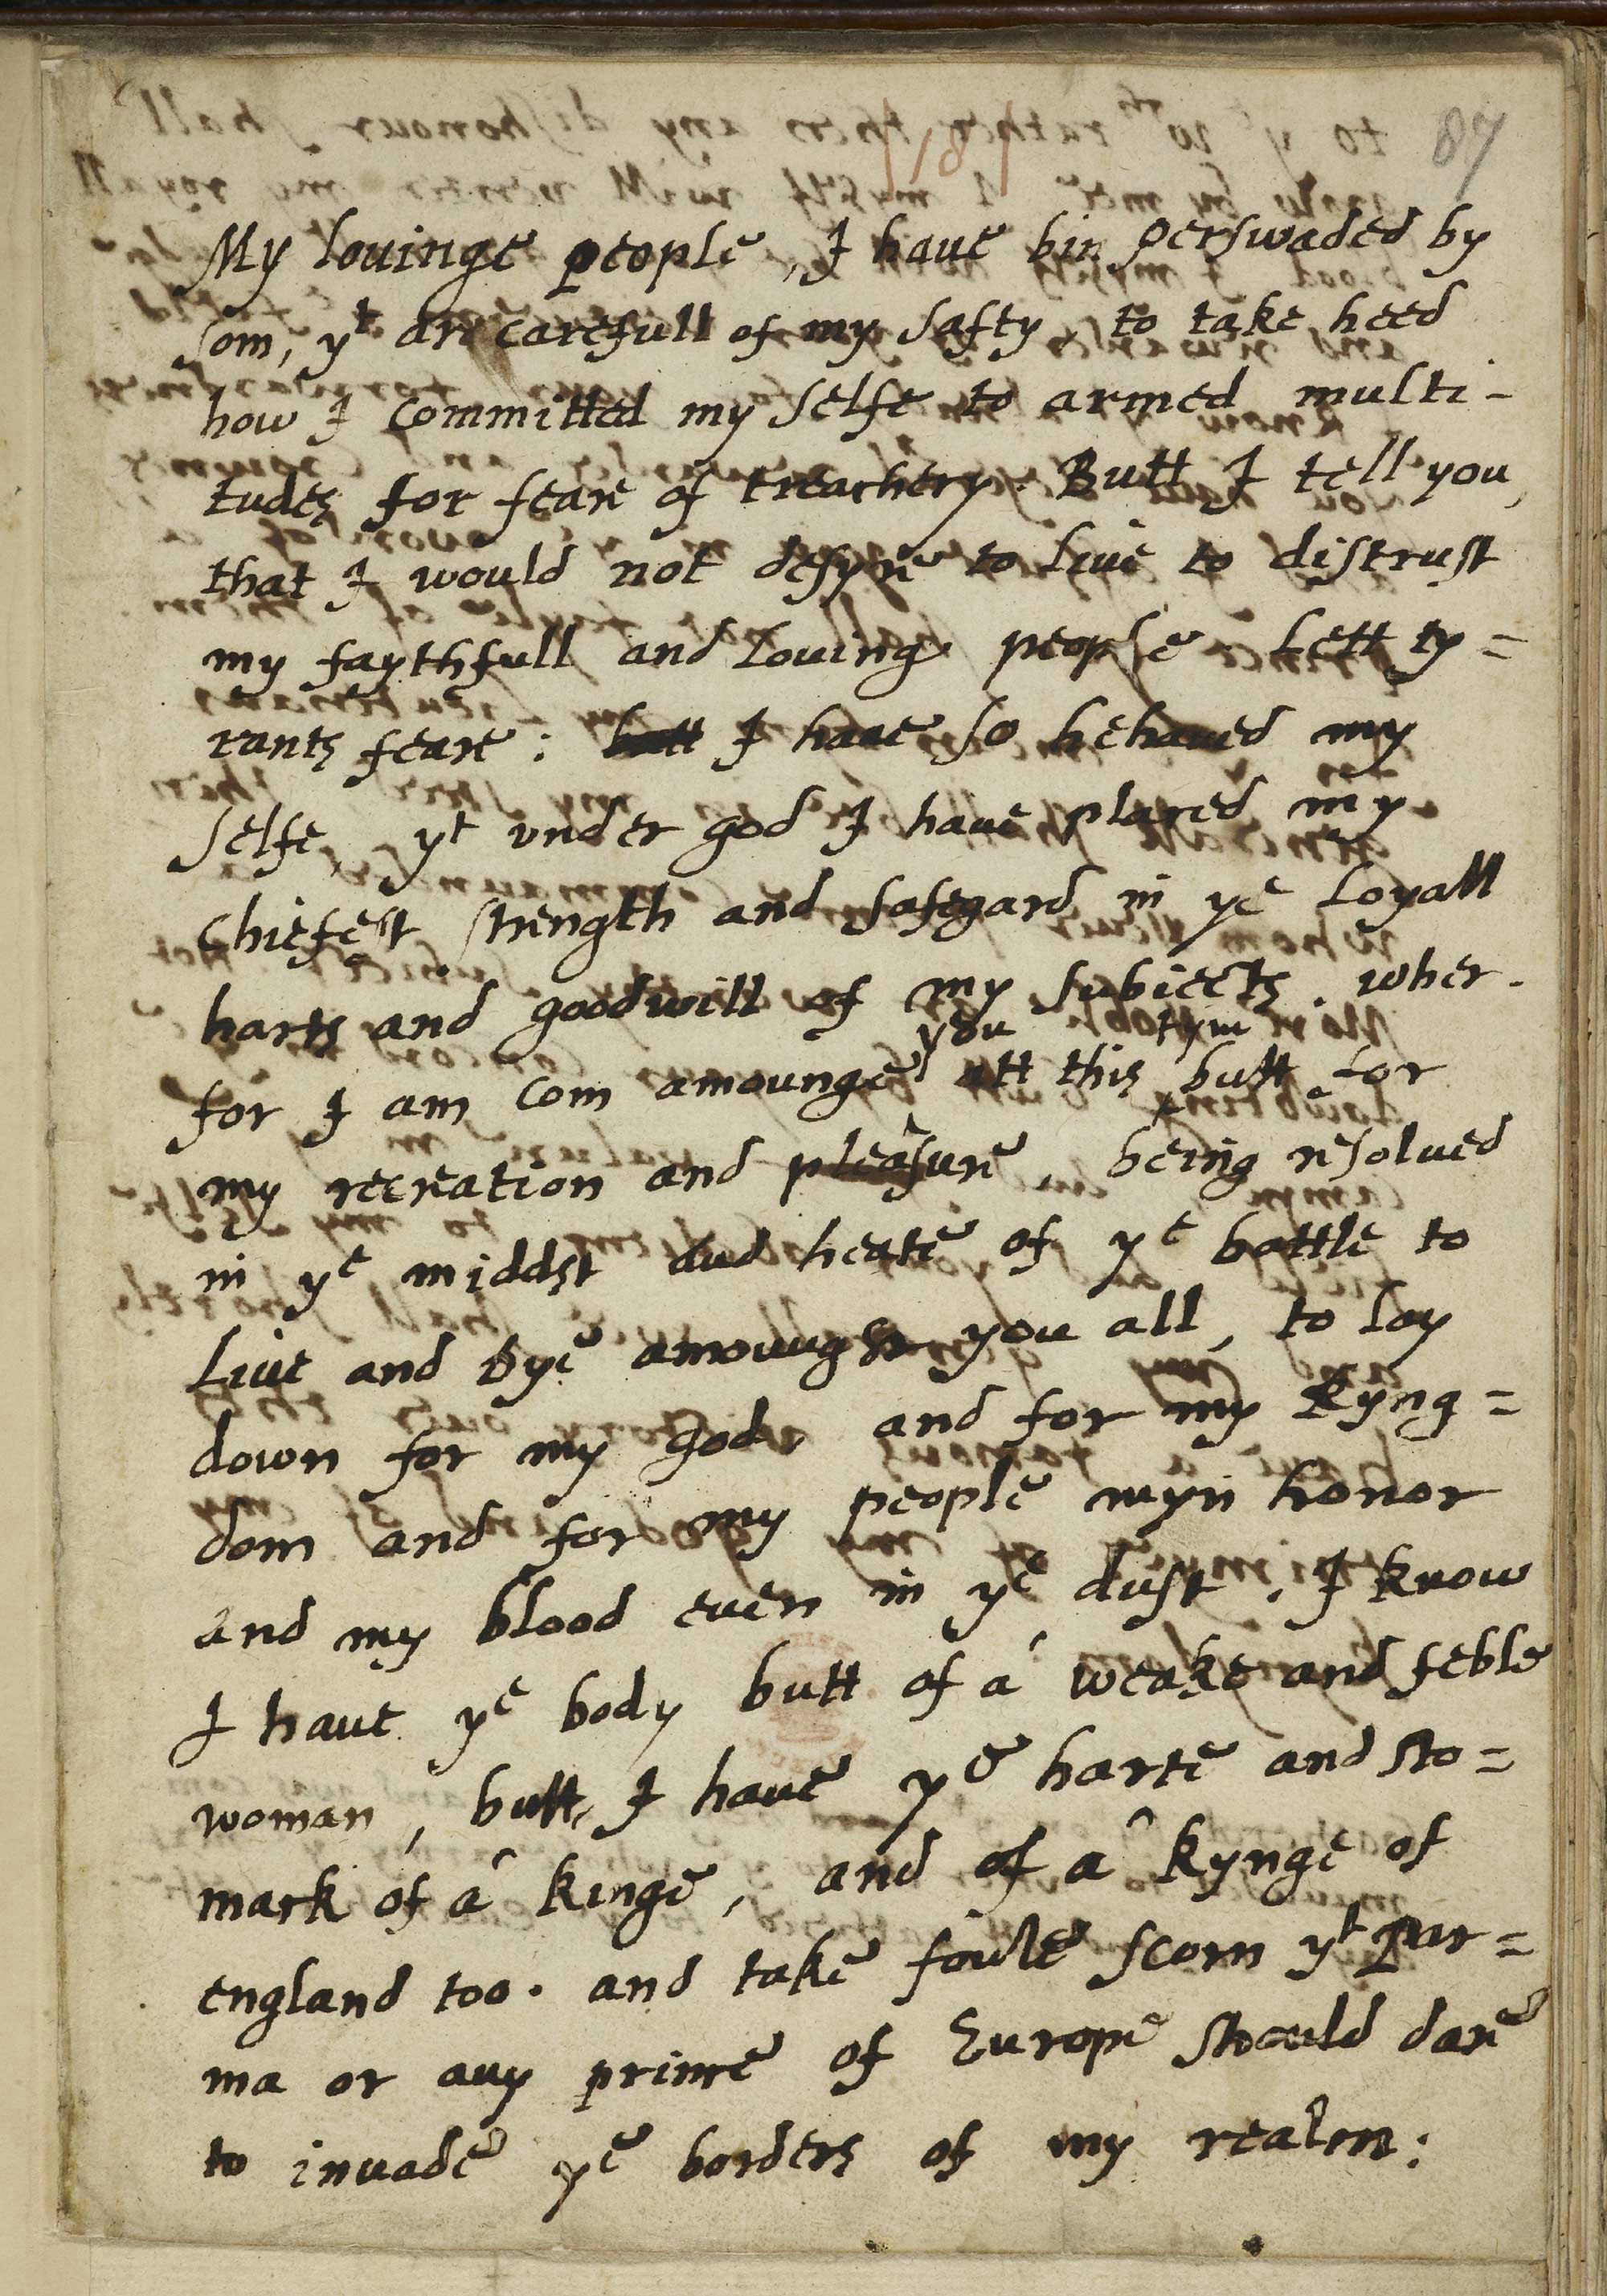 87
My louinge people, I haue bin perswaded by
som, yt are carefull of my safty, to take heed
how I committed my selfe to armed multi-
tudes for feare of treachery. Butt I tell you,
that I would not desyre to liue to distrust
my faythfull and louing people Lett ty=
rants feare: butt I haue so behaued my
selfe, yt vnder god I haue placed my
chiefest strength and safegard in ye loyall
harts and goodwill of my subiects. wher-
you tym
for I am com amounge att this butt for
my recreation and pleasure, being resolued
in ye middst and heate of ye battle to
liue and dye amoungst you all, to lay
down for my god, and for my kyng=
dom and for my people myn honor
and my blood euen in ye dust. I know
I haue ye body butt of a weake and feble
woman, butt I haue ye harte and sto=
mack of a kinge, and of a kynge of
england too. and take foule scorn yt Par=
ma or any prince of Europe should dare
to inuade ye borders of my realm: